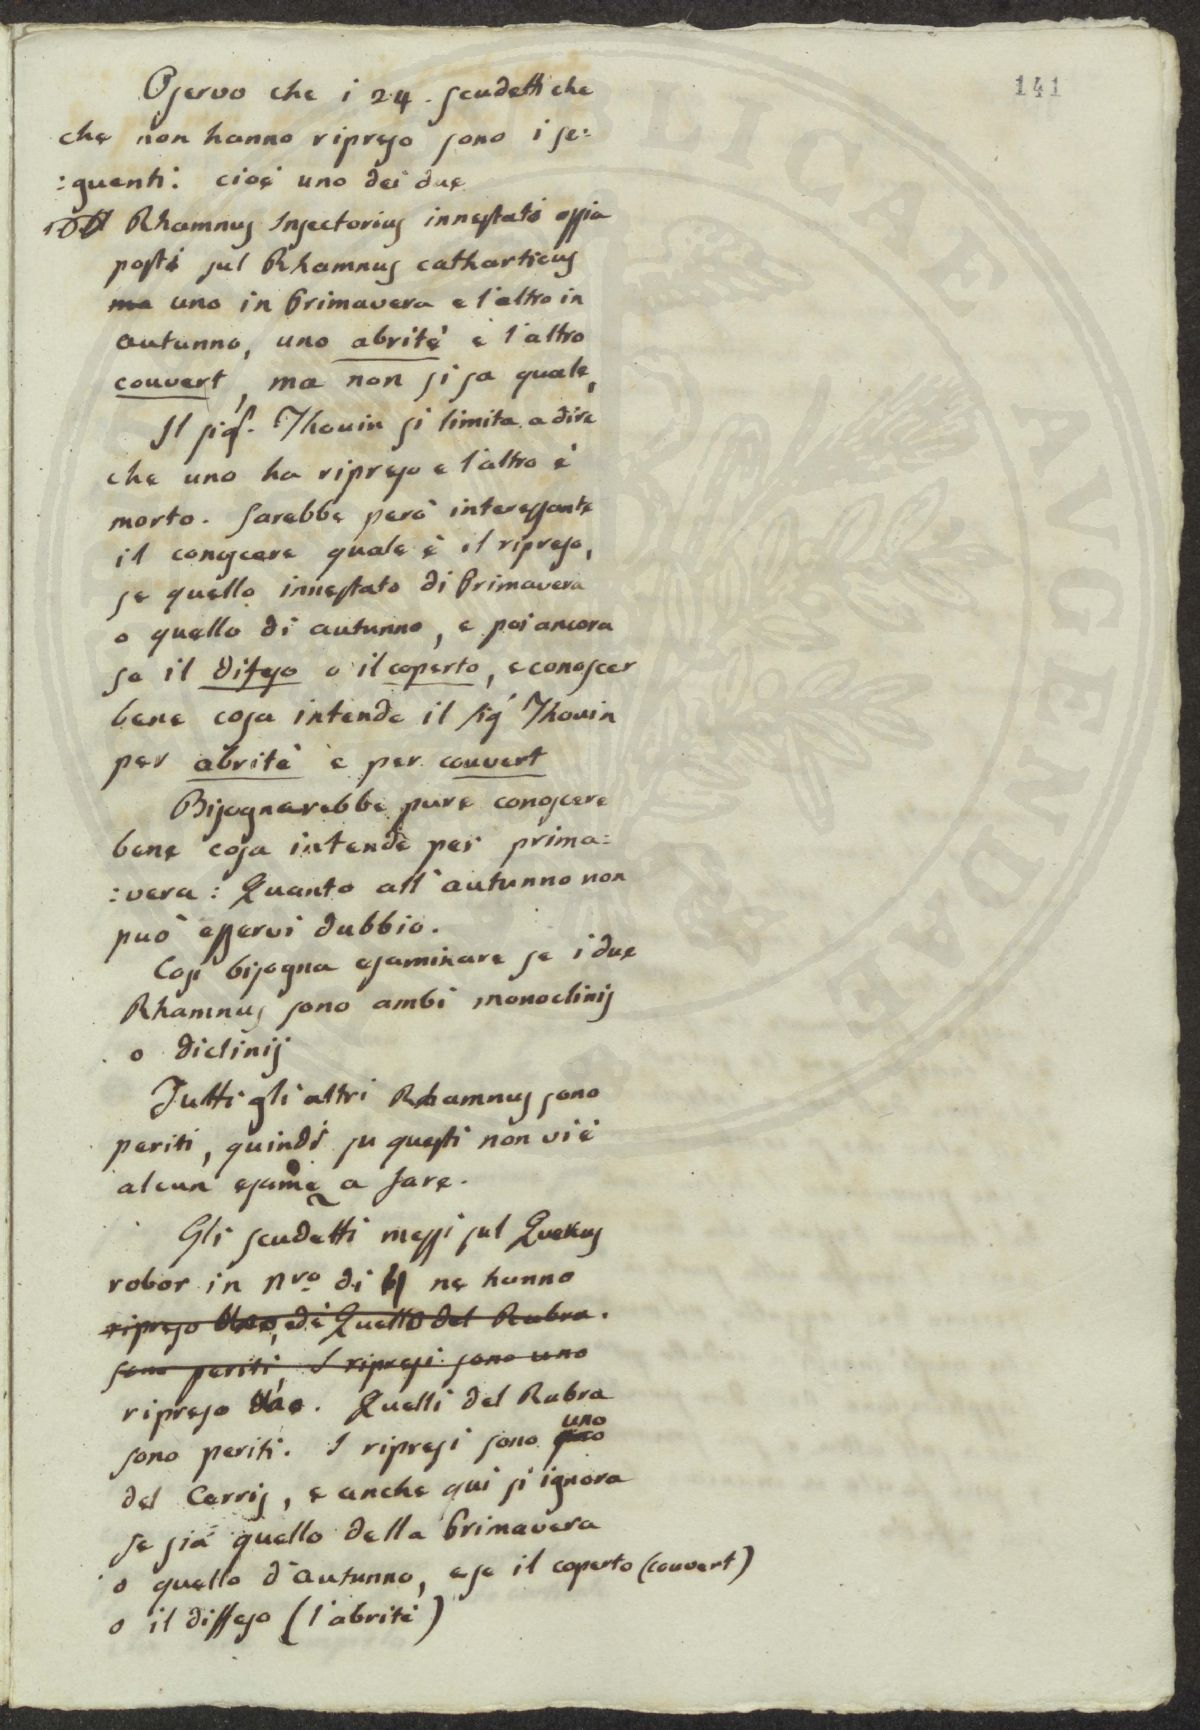 141
Osservo che i 24. scudetti che
che non hanno ripreso sono i se=
:guenti: cioè uno dei due
Rhamnus Infectorius innestati ossia
posti sul Rhamnus catharticus
ma uno in Primavera e l'altro in
autunno, uno abrité e l'altro
couvert, ma non si sa quale,
Il sigr. Thouin si limita a dire
che uno ha ripreso e l'altro è
morto. Sarebbe però interessante
il conoscere quale è il ripreso,
se quello innestato di Primavera
o quello di autunno, e poi ancora
se il difeso o il coperto, e conoscer
bene cosa intende il sigr Thouin
per abritè e per couvert
Bisognarebbe pure conoscere
bene cosa intende per prima=
:vera: Quanto all'autunno non
può esservi dubbio.
Così bisogna esaminare se i due
Rhamnus sono ambi monoclinij
o diclinij
Tutti gli altri Rhamnus sono
periti, quindi su questi non vi è
alcun esame a fare.
Gli scudetti messi sul Quercus
robor in nro. di ne hanno
ripreso due, e di Quelli del Rubra.
sono periti, I ripresi sono uno
ripreso due. Quelli del Rubra
sono periti. I ripresi sono uno
del Cerris, e anche qui si ignora
se sia quello della Primavera
o quello d'autunno, e se il coperto (couvert)
o il diffeso (l'abrité)